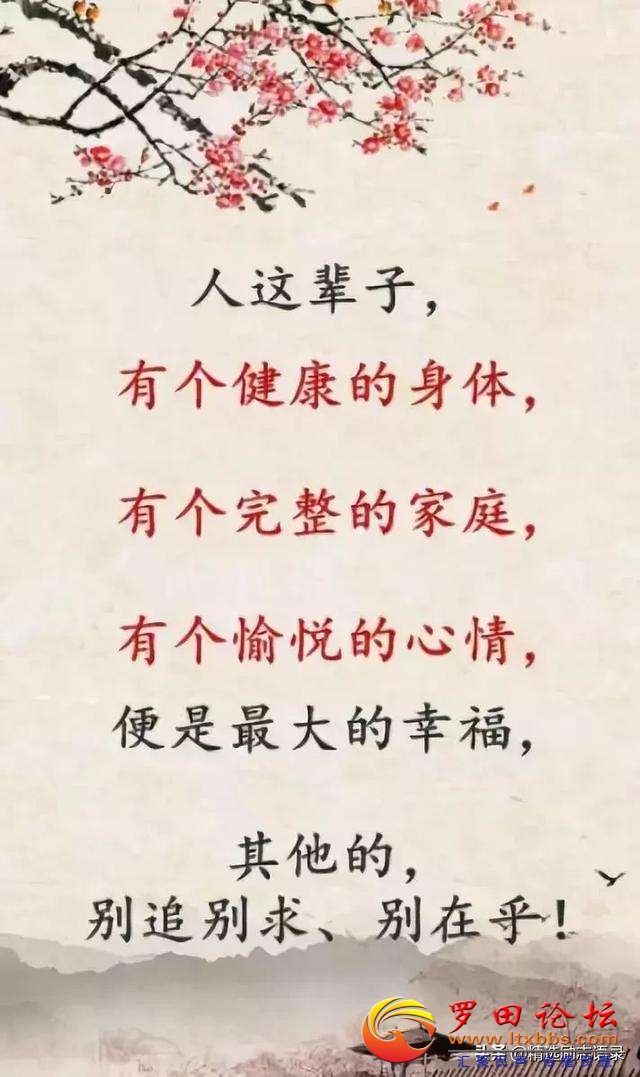 人这辈子，
有个健康的身体，
有个完整的家庭，
有个愉悦的心情，
便是最大的幸福，
其他的，
别追别求、别在乎！
罗田论坛
www.ltxbbs.com
头条@精选励志语录